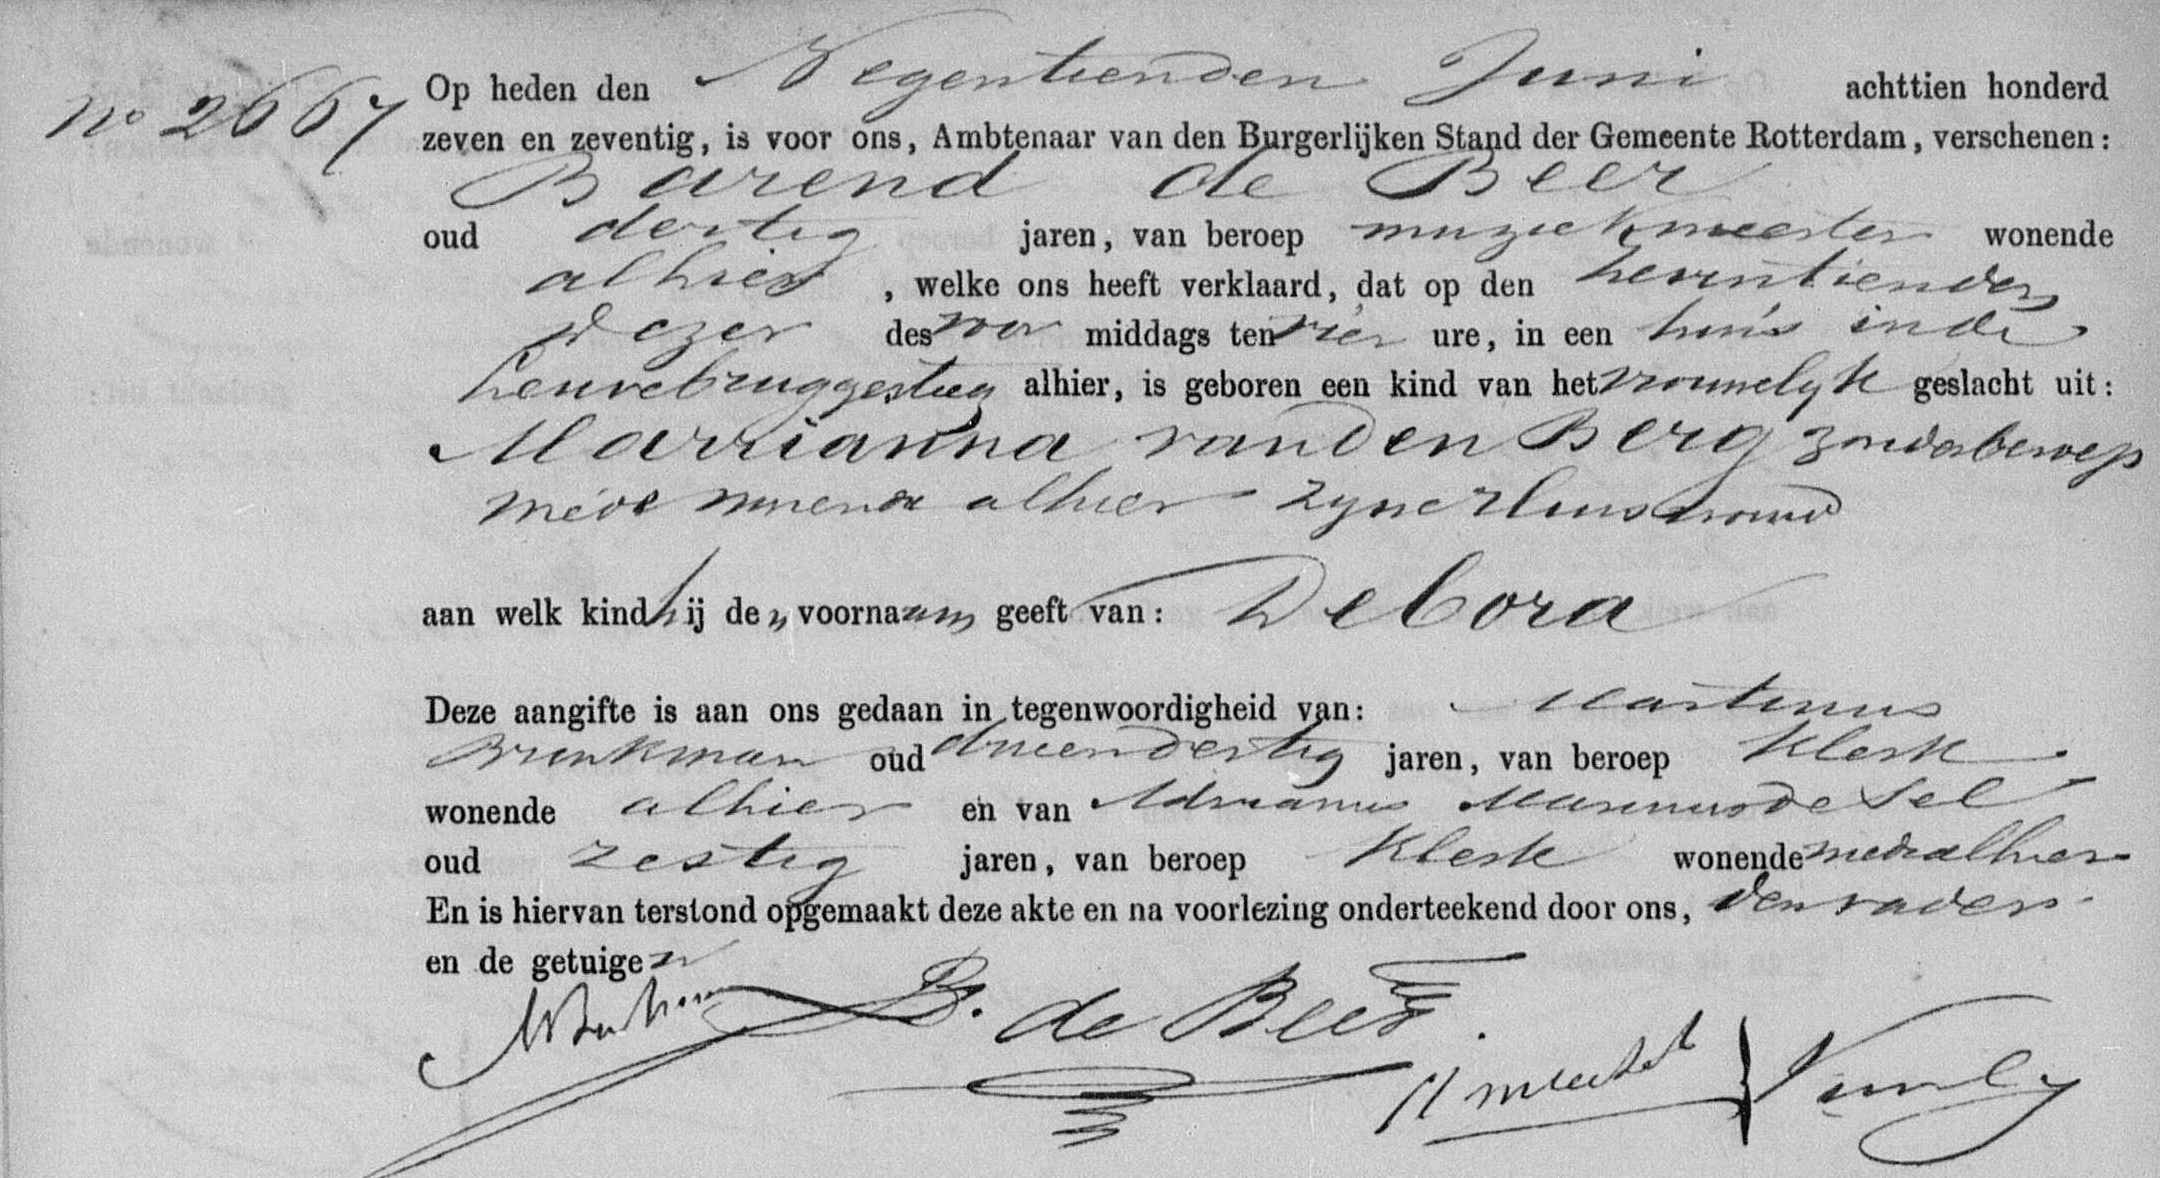 No 2667
Op heden den Negentienden Juni achttien honderd
zeven en zeventig, is voor ons, Ambtenaar van den Burgerlijken Stand der Gemeente Rotterdam, verschenen:
Barend de Beer
oud dertig jaren, van beroep muziekmeester wonende
alhier, welke ons heeft verklaard, dat op den zeventienden
dezer des voor middags ten vier ure, in een huis in de
Leuvebruggesteeg alhier, is geboren een kind van het vrouwelyk geslacht uit:
Marrianna van den Berg zonder beroep
mede wonende alhier zyne Huisvrouw
aan welk kind hij den voornaam geeft van: Debora
Deze aangifte is aan ons gedaan in tegenwoordigheid van: Martinus
Brinkman oud drieendertig jaren, van beroep Klerk
wonende alhier en van Adrianus Marinus de Sel
oud zestig jaren, van beroep Klerk wonende mede alhier
En is hiervan terstond opgemaakt deze akte en na voorlezing onderteekend door ons, den vader
en de getuigen
B. de Beer